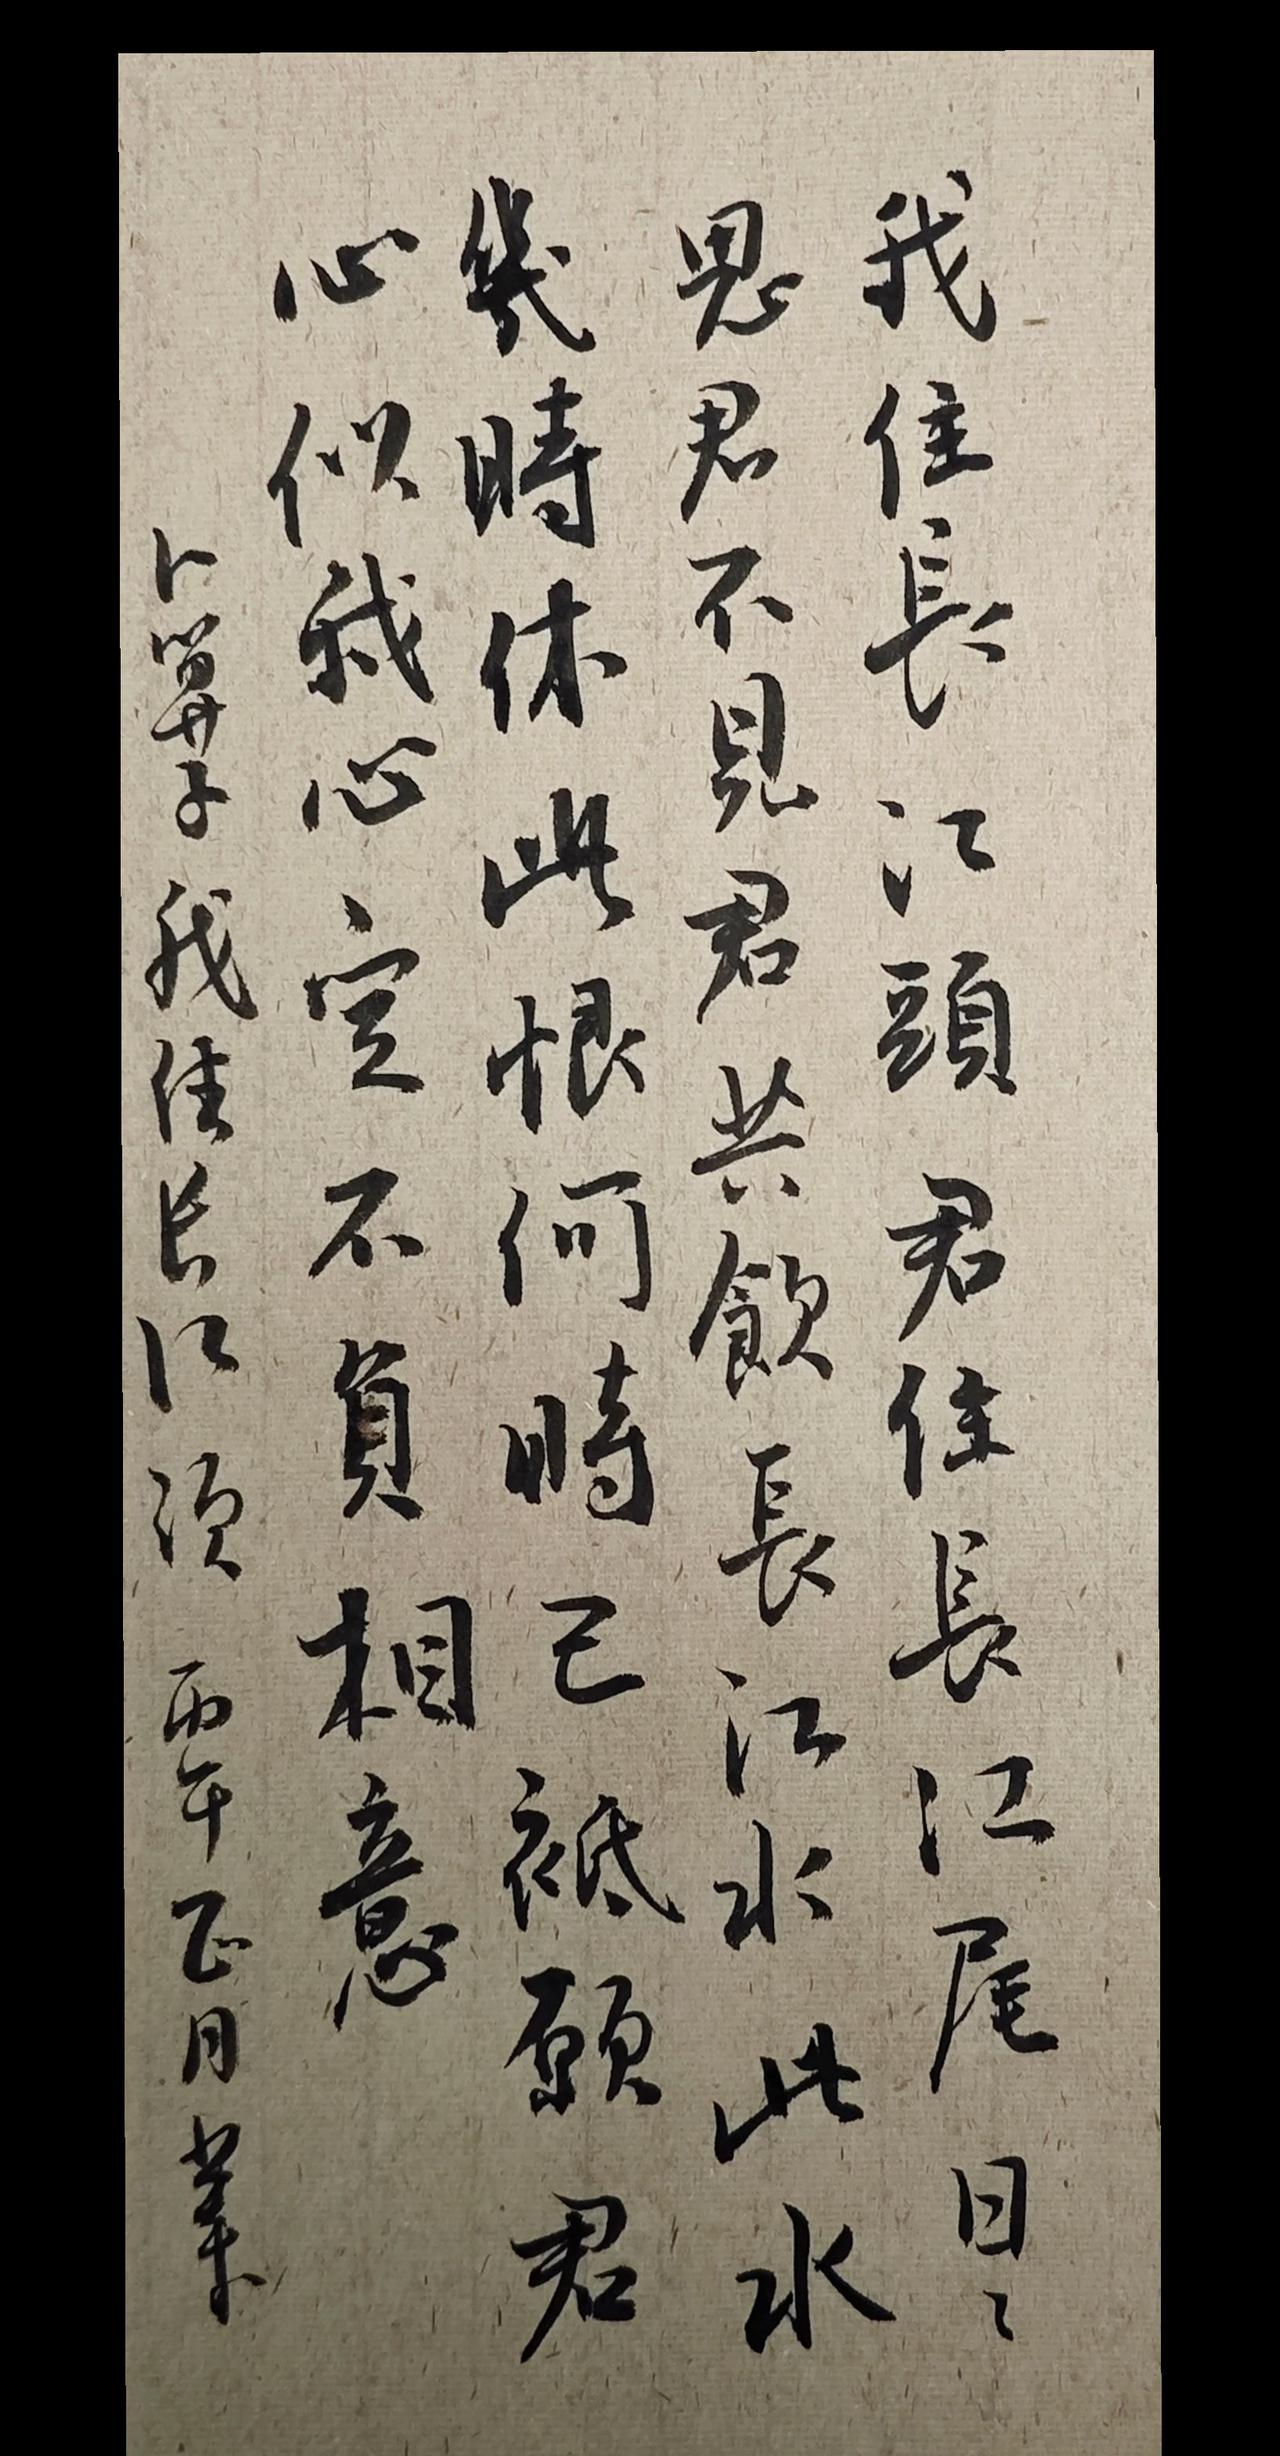 我住長江頭君住長江尾日〻
思君不見君共飲長江水此水
幾時休此恨何時已祗願君
心似我心定不負相意
卜算子我住长江头丙午正月業